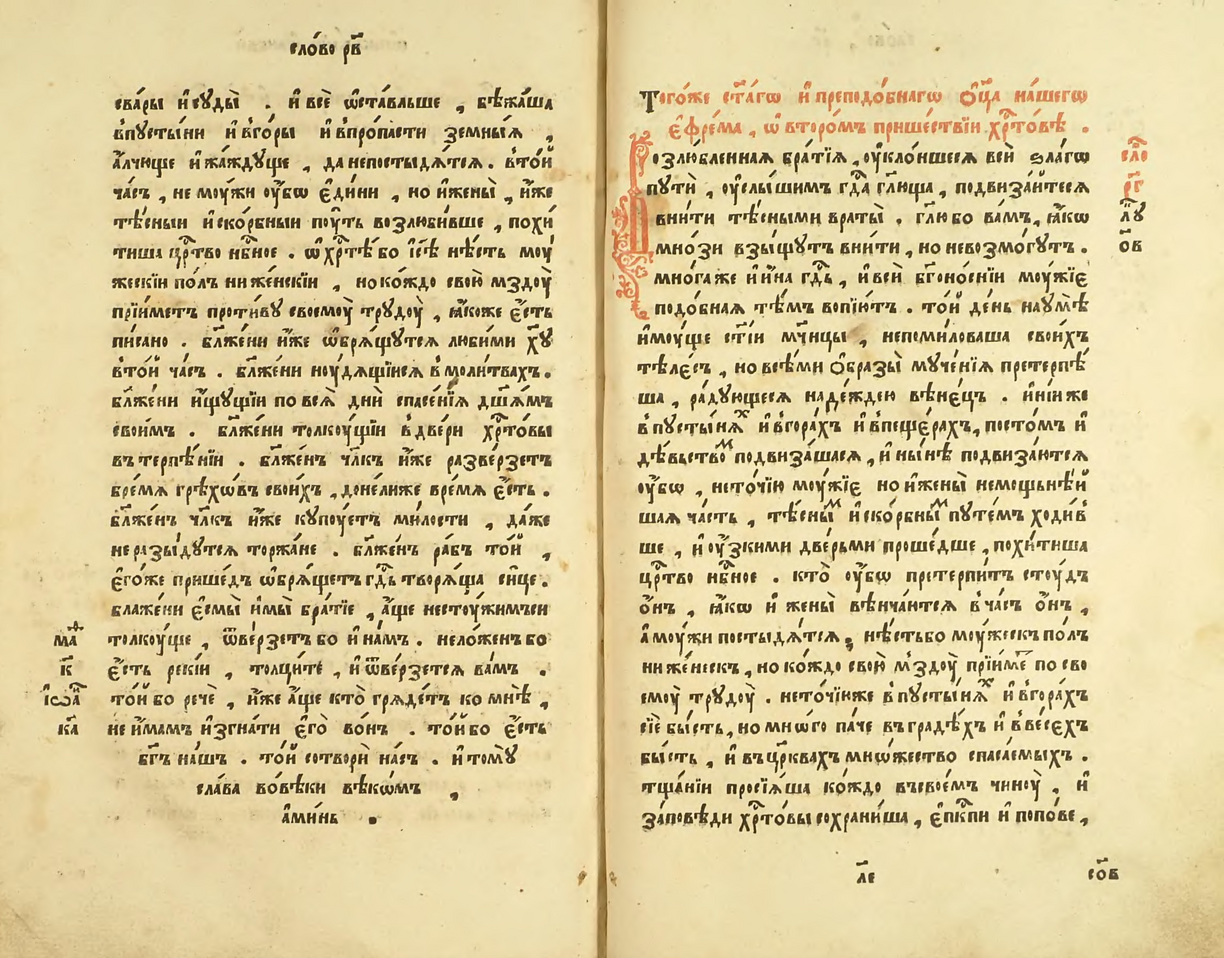 сло́во рв҃
сва́ры и҆ сꙋды̀ . и҆ всѐ ѡ҆ста́вльше , бѣжа́ша
в пꙋсты́ни и҆ в го́ры и҆ в про́пасти земны́ѧ ,
а҆́лчꙋще и҆ жа́ждꙋще , да не постыдѧ́тсѧ . в то́й
ча́съ , не моу́жи оу҆́бѡ є҆ди́ни , но и҆ жены̀ , и҆́же
тѣ́сныи и҆ ско́рбныи поу́ть возлюби́вше , похи́
тиша црⷭ҇тво нбⷭ҇ное . ѡ҆ хрⷭ҇тѣ́ бо і҆с҃ѣ нѣ́сть моу́
жескїи по́лъ ни же́нскїи , но ко́ждо свою̀ мздоу̀
прїи́метъ проти́вꙋ своемоу̀ трꙋдоу̀ , ꙗ҆́коже є҆́сть
пи́сано . бл҃же́ни и҆́же ѡ҆брѧ́щꙋтсѧ люби́ми хꙋ҃
в то́й ча́съ . бл҃же́ни ноу́дѧщїисѧ в моли́твахъ .
бл҃же́ни и҆́щꙋщїи по всѧ̀ дни̑ спасе́нїѧ дш҃а́мъ
свои́мъ . бл҃же́ни толкоу́щїи в две́ри хрⷭ҇то́вы
въ терпѣ́нїи . бл҃же́нъ чл҃къ и҆́же разве́рзетъ
бре́мѧ грѣхѡ́въ свои́хъ , до́нелиже вре́мѧ є҆́сть .
бл҃же́нъ чл҃къ и҆́же кꙋпоу́етъ ми́лости , да́же
не разы́дꙋтсѧ торжа́не . бл҃же́нъ ра́бъ то́й ,
є҆го́же прише́дъ ѡ҆брѧ́щетъ гдⷭ҇ь творѧ́ща си́це .
блаже́ни є҆смы̀ и҆ мы̀ бра́тїе , а҆́ще не стоужи́мъси
толкоу́ще , ѿве́рзетъ бо и҆ на́мъ . нело́женъ бо
є҆́сть реки́и , толцы́те , и҆ ѿве́рзетсѧ ва́мъ .
то́й бо речѐ , и҆́же а҆́ще кто̀ грѧде́тъ ко мнѣ̀ ,
не и҆́мамъ и҆згна́ти є҆го̀ во́нъ . то́й бо є҆́сть
бг҃ъ на́шъ . то́й сотворѝ на́съ . и҆ томꙋ̀
сла́ва во вѣ́ки вѣкѡ́мъ ,
а҆ми́нь .
к҃
і҆ѡа҃
ка҃
Того́же ст҃а́гѡ и҆ преподо́бнагѡ ѻ҆ц҃а на́шегѡ
є҆фре́ма , ѡ҆ второ́мъ прише́ствїи хрⷭ҇то́вѣ .
Возлю́бленнаѧ бра́тїѧ , оу҆кло́ншеесѧ всѝ ѕла́гѡ
пꙋтѝ , оу҆слы́шимъ гдⷭ҇а гл҃ща , подвиза́итеесѧ
вни́ти тѣ́сными враты̀ . гл҃ю бо ва́мъ , ꙗ҆́кѡ
мно́зи взы́щꙋтъ вни́ти , но не возмо́гꙋтъ .
мно́га же и҆ и҆́на гдⷭ҇ь , и҆ всѝ бг҃оно́снїи моу́жїе
подо́бнаѧ тѣ́мъ вопїю́тъ . то́й де́нь на оу҆мѣ̀
и҆моу́ще ст҃і́и мчⷭ҇нцы , не поми́ловаша свои́хъ
тѣле́съ , но всѣ́ми ѻ҆́бразы мꙋче́нїѧ претерпѣ́
ша , ра́дꙋющесѧ наде́ждею вѣне́цъ . и҆ні́и же
в пꙋсты́нѧⷯ и҆ в гора́хъ и҆ в пеще́рахъ , посто́мъ и҆
дѣ́вьствоⷨ подвиза́шасѧ , и҆ ны́нѣ подвиза́ютсѧ
оу҆́бѡ , не то́чїю моу́жїе но и҆ жены̀ немощьнѣ́й
шаѧ ча́сть , тѣ́сныⷨ и҆ ско́рбныⷨ пꙋте́мъ ходи́в
ше , и҆ оу҆́зкими две́рьми проше́дше , похи́тиша
црⷭ҇тво нбⷭ҇ное . кто̀ оу҆́бѡ претерпи́тъ стоу́дъ
ѻ҆́нъ , ꙗ҆́кѡ и҆ жены̀ вѣнча́ютсѧ в ча́съ ѻ҆́нъ ,
а҆ моу́жи постыдѧ́тсѧ , нѣ́сть бо моу́жескъ по́лъ
ни же́нескъ , но ко́ждо свою̀ мздоу̀ прїи́меⷮ по сво
емоу̀ трꙋдоу̀ . не то́чїи же в пꙋсты́нѧⷯ и҆ в гора́хъ
сїѐ бы́сть , но мно́го па́че въ градѣ́хъ и҆ в ве́сехъ
бы́сть , и҆ въ цр҃квахъ мно́жество спаса́емыхъ .
тща́нїи просїѧ́ша ко́ждо въ свое́мъ чиноу̀ , и҆
за́повѣди хрⷭ҇то́вы сохрани́ша , є҆пⷭ҇кпи и҆ попо́ве ,
сло҃
рг҃
лꙋ҃
ѻв
ле҃
сов